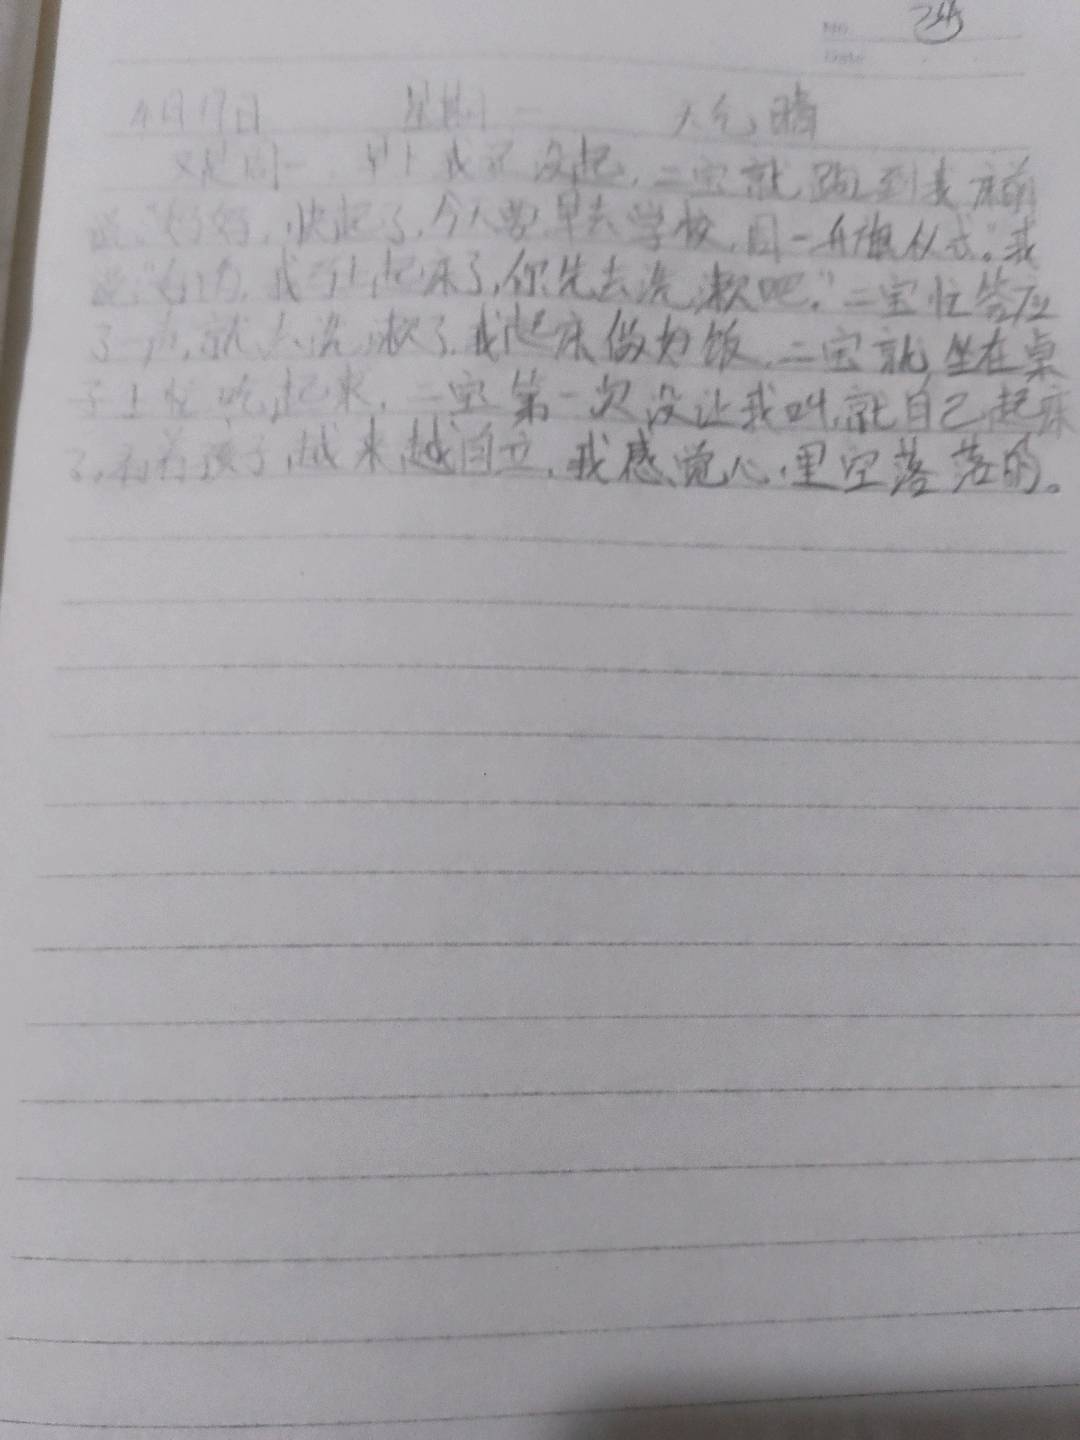 No
Date
4月17日 星期一 天气晴
又是周一,早上我还没起,二宝就跑到我床前
说:"妈妈,快起了,今天要早去学校,周一升旗仪式。"我
说:"好的,我马上起床了,你先去洗漱吧。"二宝忙答应
了一声,就去洗漱了,我起床做好饭,二宝就坐在桌
子上忙吃起来,二宝第一次没让我叫,就自己起床
了,看着孩子越来越自立,我感觉心里空落落的。